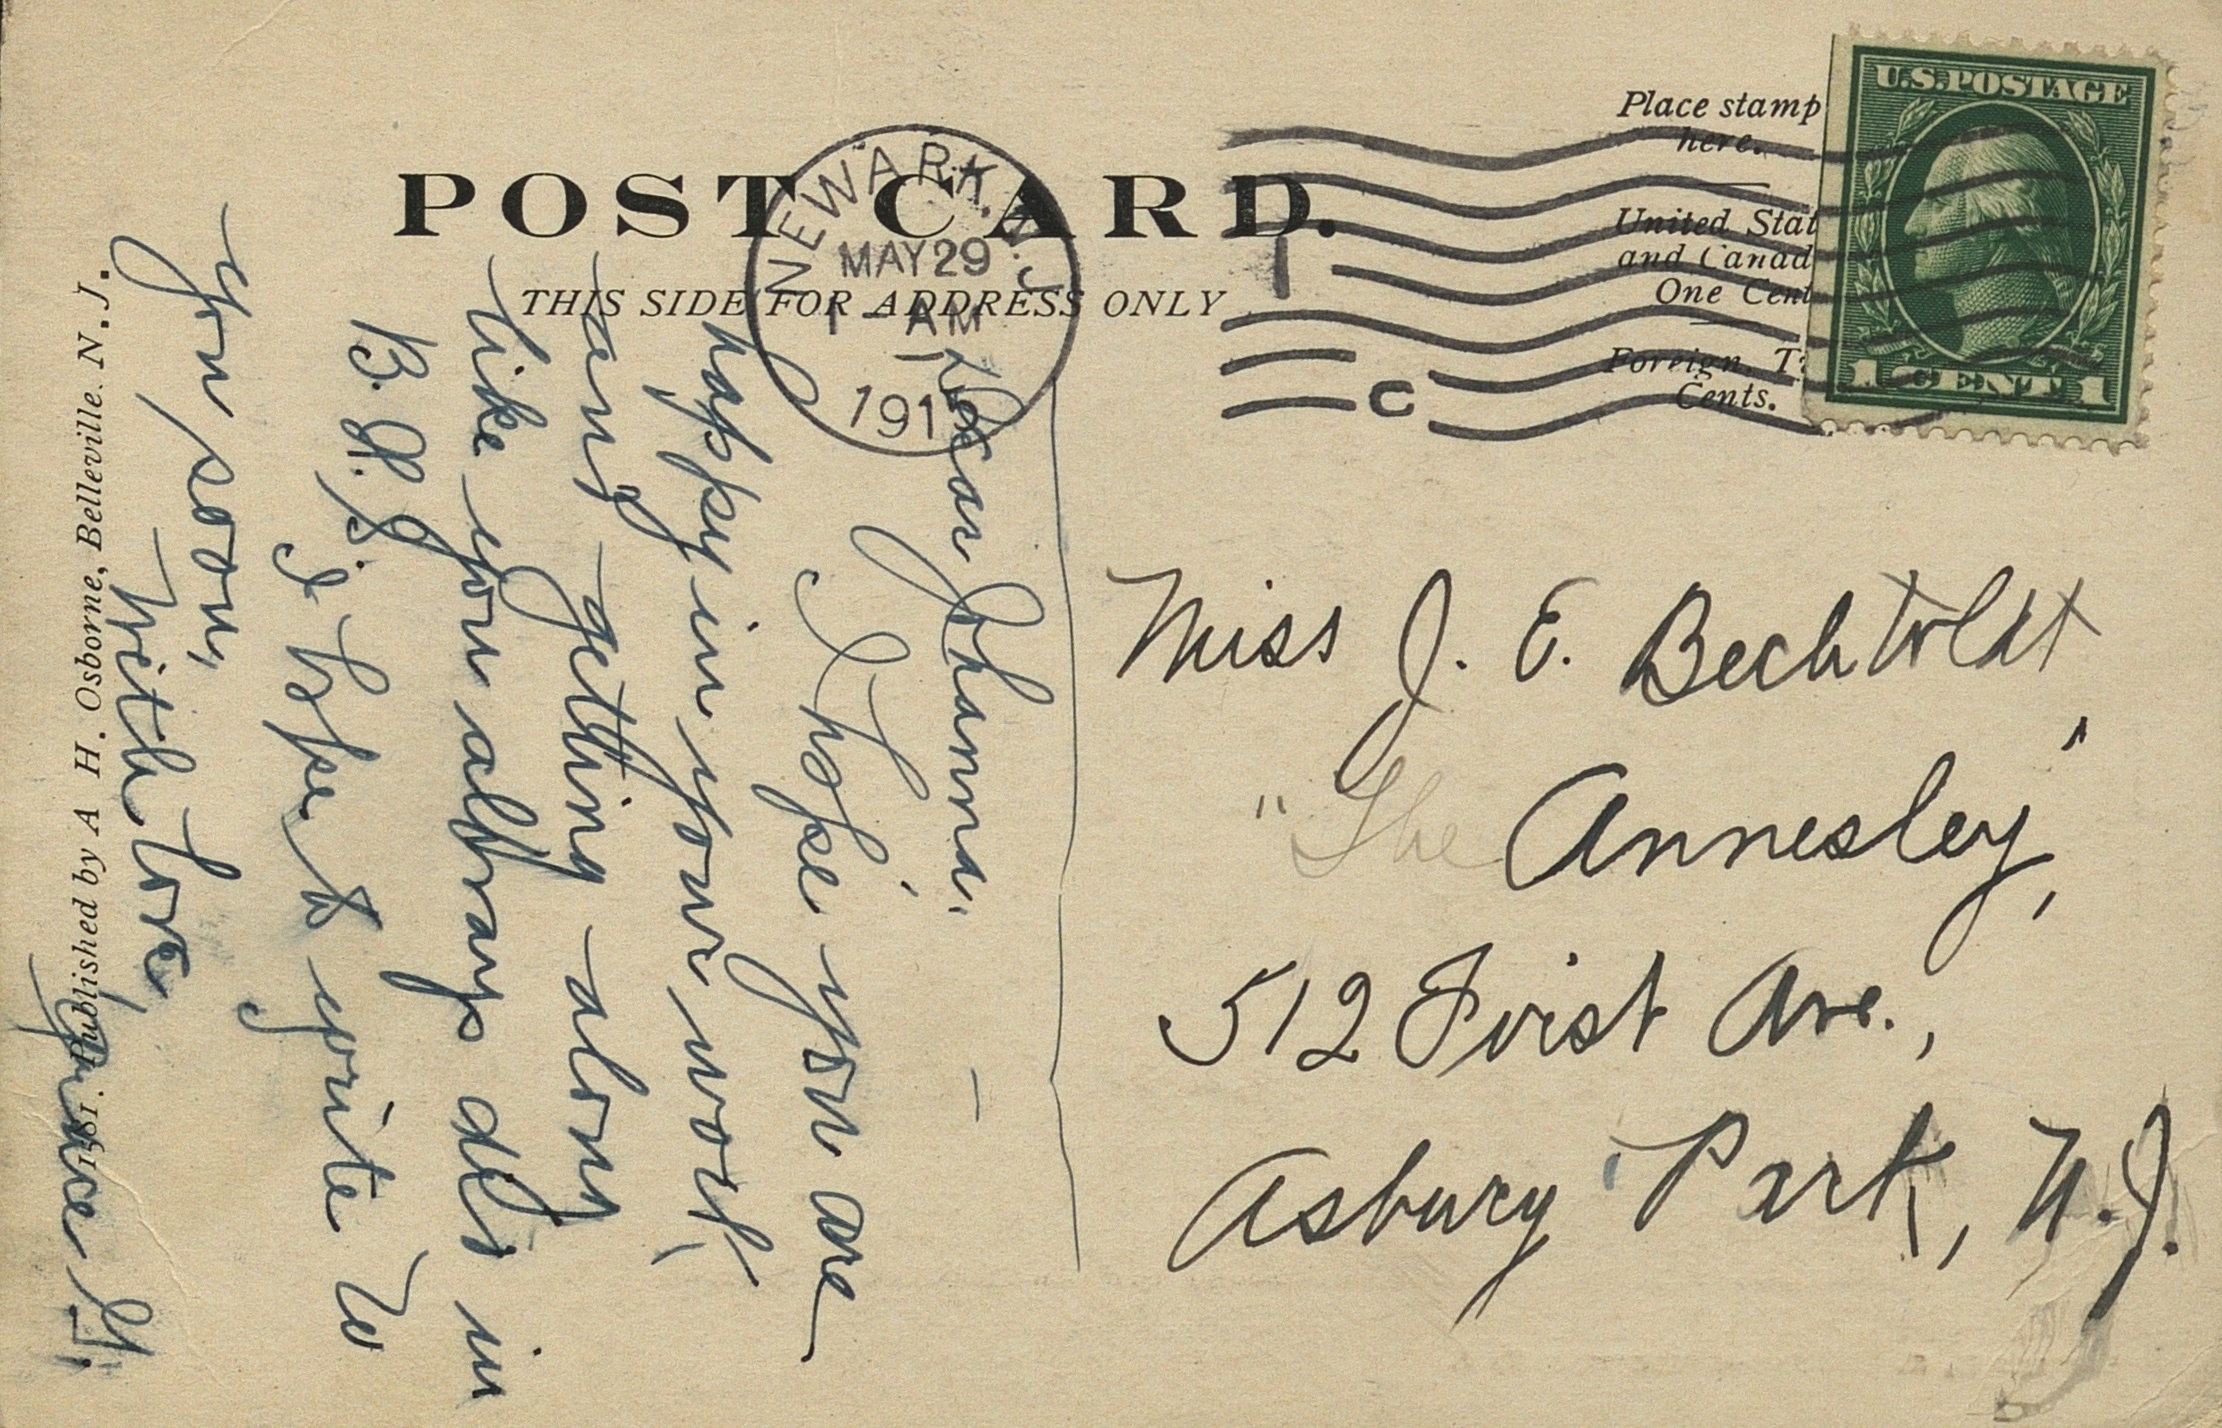 POST CARD.
THIS SIDE FOR ADDRESS ONLY
Place stamp
here.
United Stat
and Canad
One Cent
Foreign. T
Cents.
U.S. POSTAGE
1 CENT 1
NEWARK, N.J.
MAY 29
1 - AM
191
C
Dear Johanna,
I hope you are
happy in your work,
and getting along
like you always did in
B. H. S.
I hope to write to
you soon,
With love,
Grace Y.
Miss J. E. Bechtoldt
"The Annesley",
512 First Ave.,
Asbury Park, N.J.
1581. Published by A H. Osborne, Belleville. N.J.